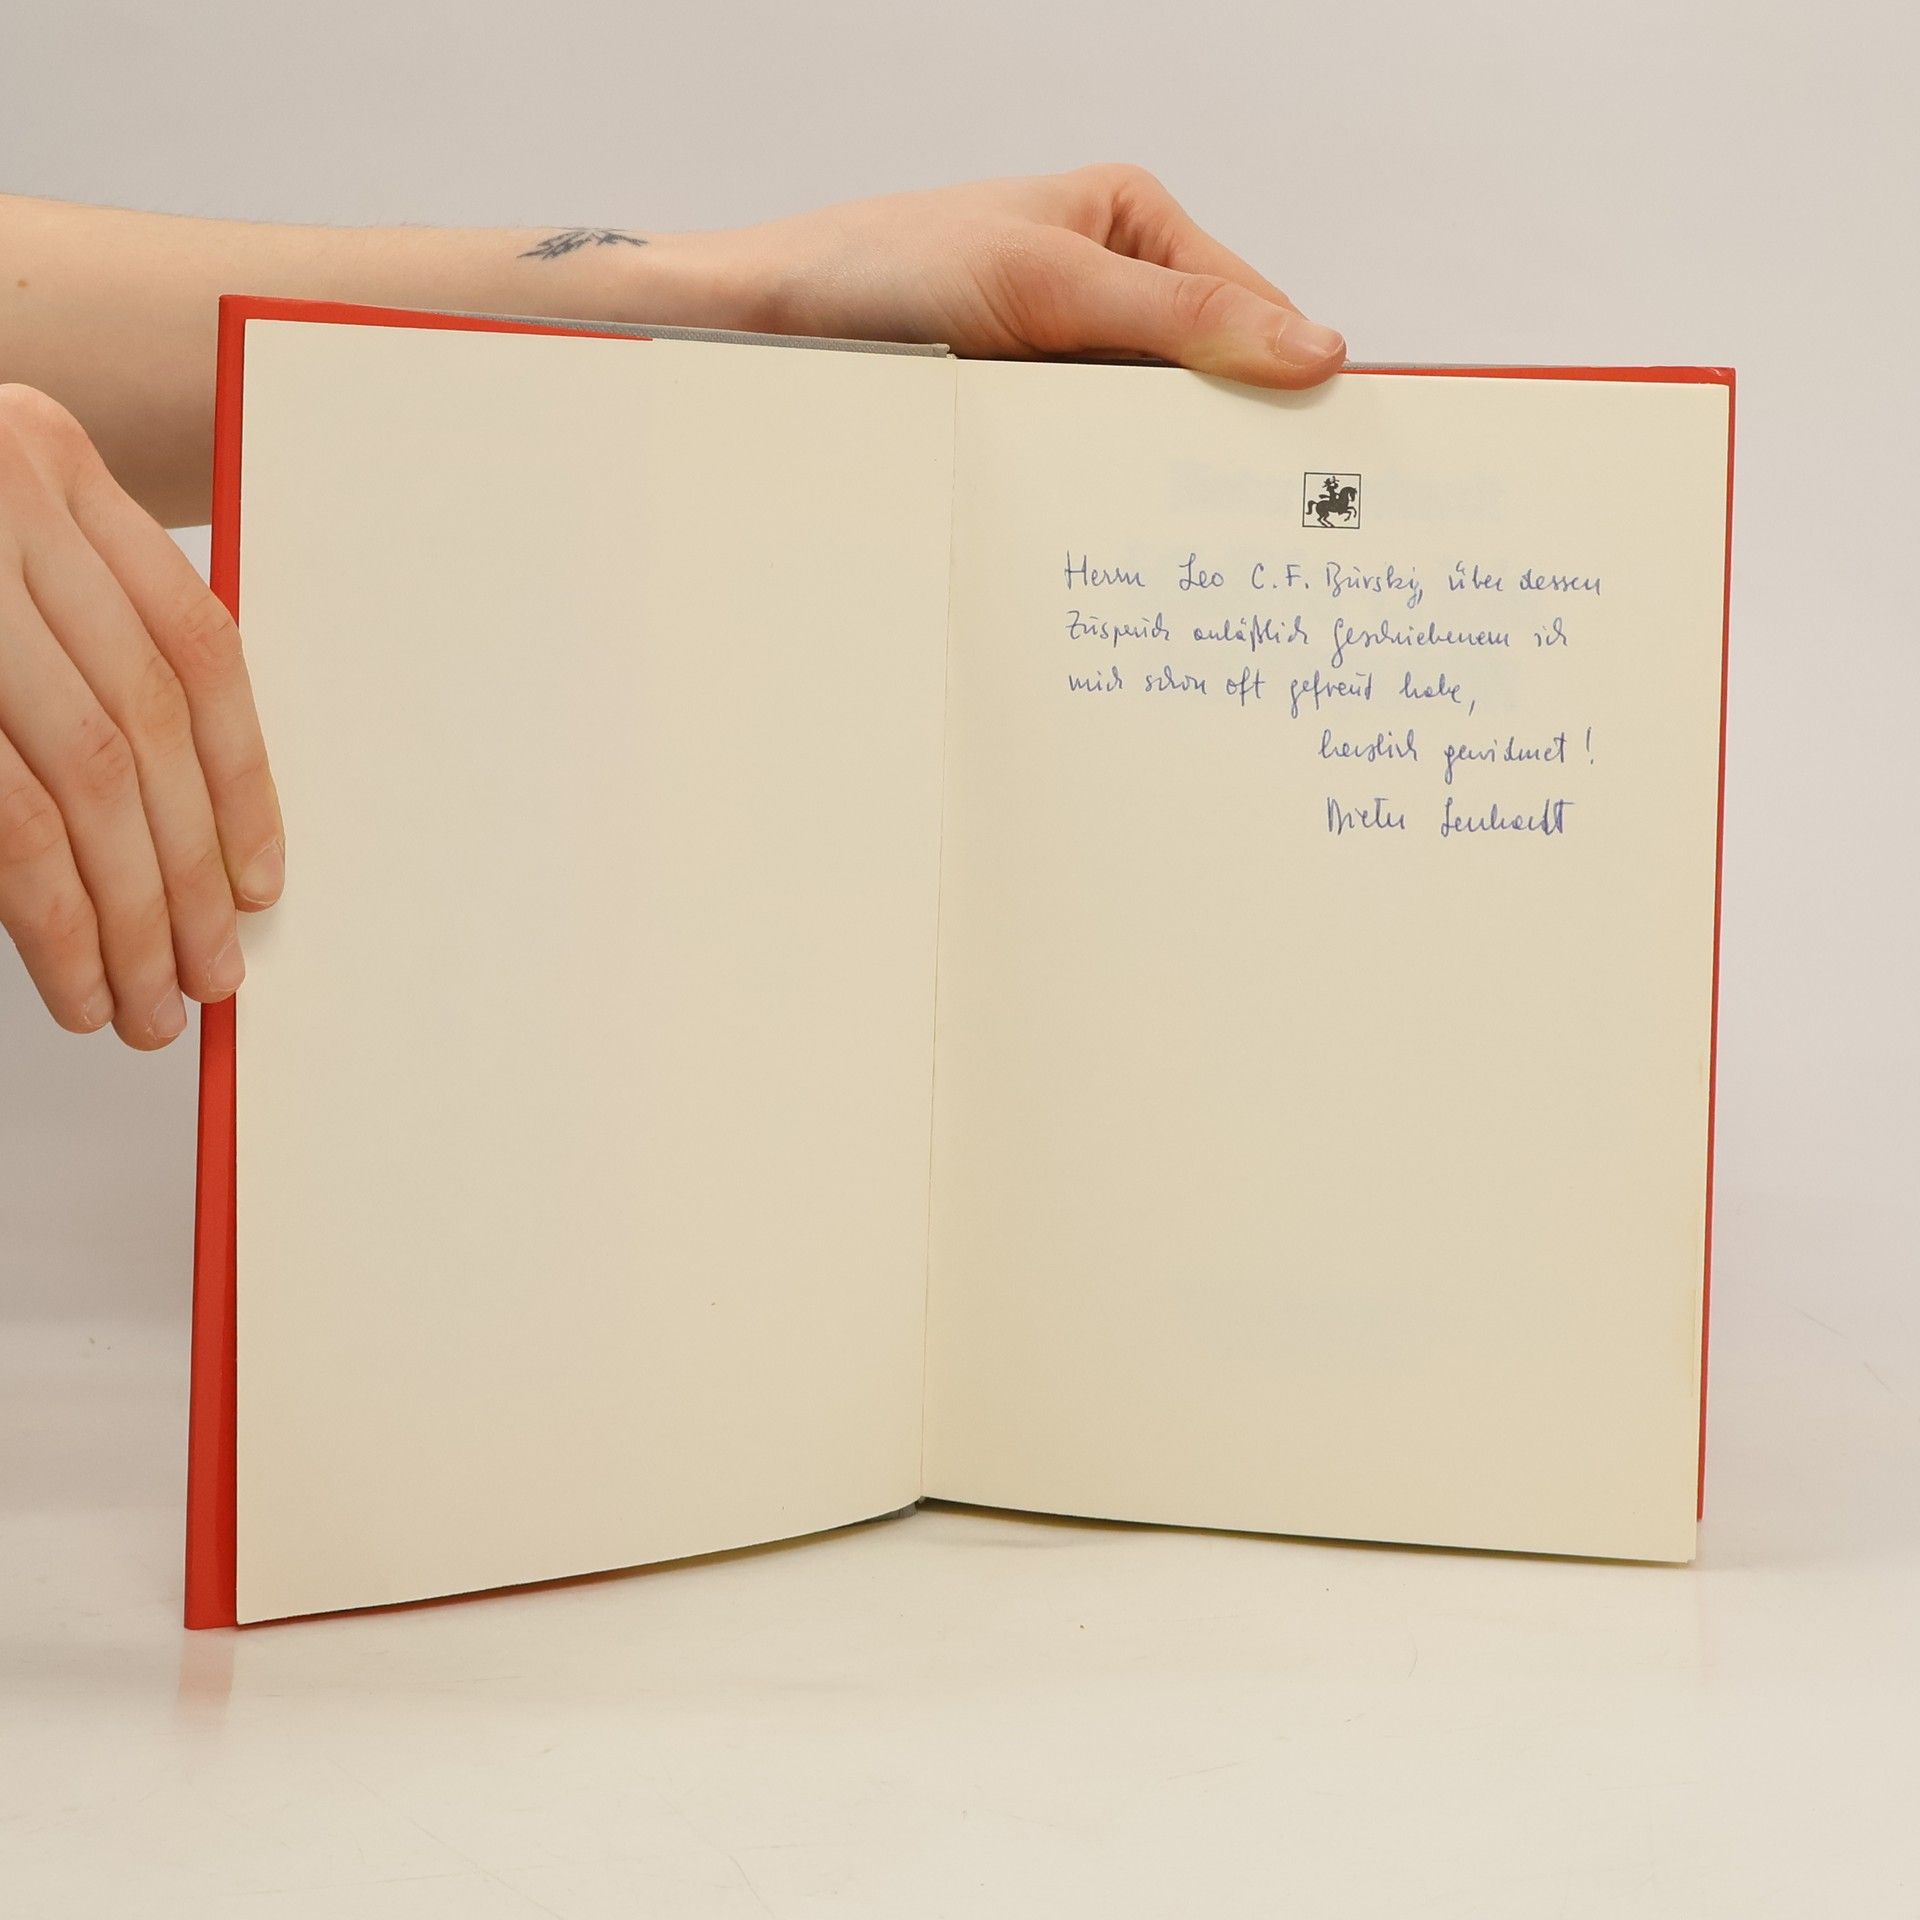 Herrn Leo C. F. Bursky, über dessen
Zuspruch anläßlich Geschriebenem ich
mich schon oft gefreut habe,
herzlich gewidmet!
Dieter Lenhardt